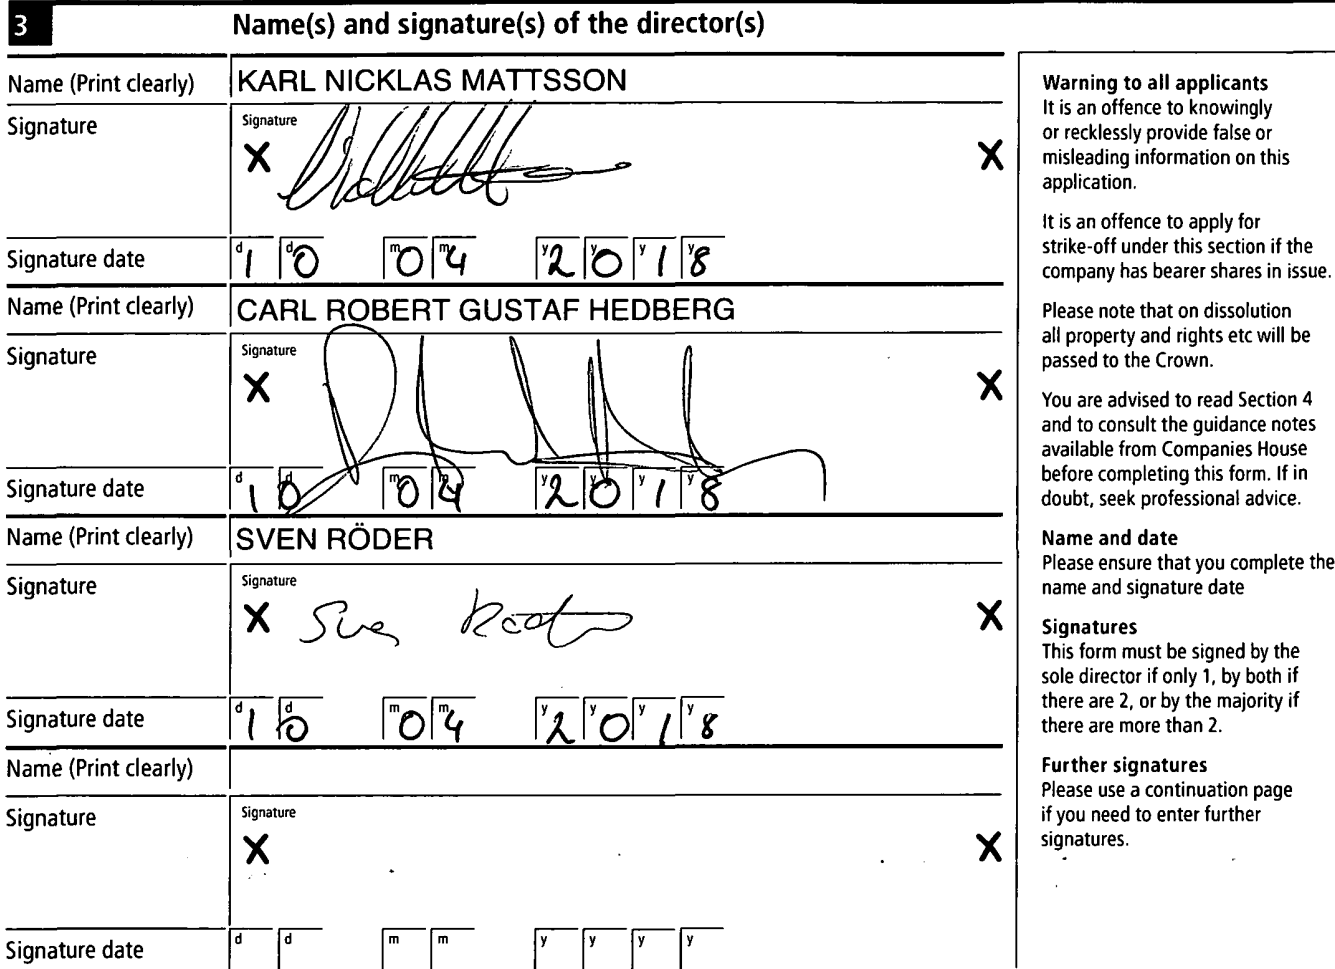 3 Name(s) and signature(s) of the director(s)
Name (Print clearly) KARL NICKLAS MATTSSON
Signature Signature
X X
Signature date d d m m y y y y
10 04 2018
Name (Print clearly) CARL ROBERT GUSTAF HEDBERG
Signature Signature
X X
Signature date d d m m y y y y
10 04 2018
Name (Print clearly) SVEN RÖDER
Signature Signature
X Sven X
Signature date d d m m y y y y
10 04 2018
Name (Print clearly)
Signature Signature
X X
Signature date d d m m y y y y
Warning to all applicants
It is an offence to knowingly
or recklessly provide false or
misleading information on this
application.
It is an offence to apply for
strike-off under this section if the
company has bearer shares in issue.
Please note that on dissolution
all property and rights etc will be
passed to the Crown.
You are advised to read Section 4
and to consult the guidance notes
available from Companies House
before completing this form. If in
doubt, seek professional advice.
Name and date
Please ensure that you complete the
name and signature date
Signatures
This form must be signed by the
sole director if only 1, by both if
there are 2, or by the majority if
there are more than 2.
Further signatures
Please use a continuation page
if you need to enter further
signatures.